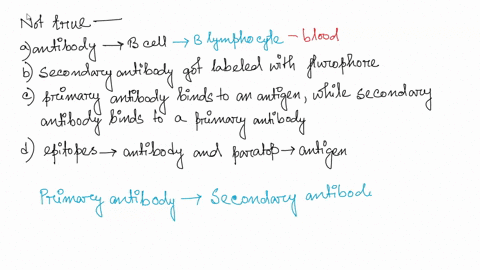 Not true —
a) antibody → B cell → B lymphocyte - blood
b) Secondary antibody got labeled with flurophore
c) primary antibody binds to an antigen, while secondary
antibody binds to a primary antibody
d) epitopes → antibody and paratop → antigen
Primary antibody → Secondary antibod